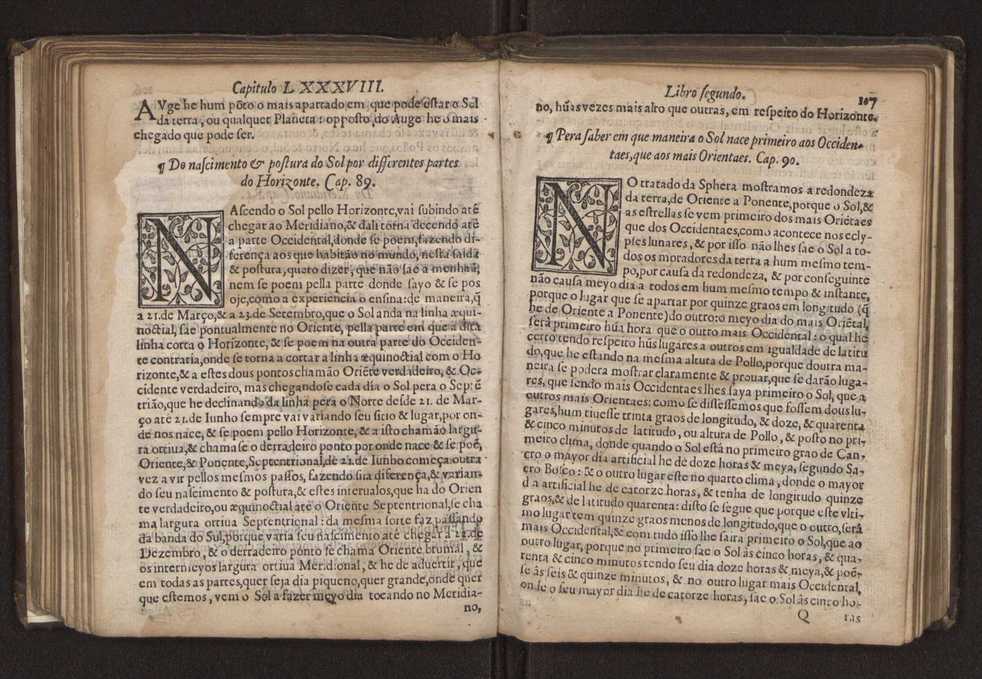 Capitulo LXXXVIII.
AVge he hum põto o mais apartado em que pode estar o Sol
da terra, ou qualquer Planeta: opposto, do Auge he o mais
chegado que pode ser.
¶ Do nascimento & postura do Sol por differentes partes
do Horizonte. Cap. 89.
NAscendo o Sol pello Horizonte, vai subindo atè
chegar ao Meridiano, & dali torna decendo atè
a parte Occidental, donde se poem, fazendo dif-
ferença aos que habitão no mundo, nesta saida
& postura, quero dizer, que não sae a menhãa,
nem se poem pella parte donde sayo & se pos
oje, como a experiencia o ensina: de maneira, q̃
a 21. de Março, & a 23. de Setembro, que o Sol anda na linha æqui-
noctial, sae pontualmente no Oriente, pella parte em que a dita
linha corta o Horizonte, & se poem na outra parte do Occiden-
te contraria, onde se torna a cortar a linha æquinoctial com o Ho
rizonte, & a estes dous pontos chamão Oriẽte verdadeiro, & Oc-
cidente verdadeiro, mas chegandose cada dia o Sol pera o Septẽ
trião, que he declinando da linha pera o Norte desde 21. de Mar-
ço atè 21. de Iunho sempre vai variando seu sitio & lugar, por on-
de nos nace, & se poem pello Horizonte, & a isto chamão largu-
ra ortiua, & chamase o derradeiro ponto por onde nace & se poẽ,
Oriente, & Ponente, Septentrional, de 21. de Iunho começa outra
vez a vir pellos mesmos passos, fazendo sua diferença, & varian-
do seu nascimento & postura, & estes interualos, que ha do Orien
te verdadeiro, ou æquinoctial atè o Oriente Septentrional, se cha
ma largura ortiua Septentrional: da mesma sorte faz passando
da banda do Sul, porque varia seu nascimento atè chegar a 22. de
Dezembro, & o derradeiro ponto se chama Oriente brumal, &
os intermeyos largura ortiua Meridional, & he de aduertir, que
em todas as partes, quer seja dia piqueno, quer grande, onde quer
que estemos, vem o Sol a fazer meyo dia tocando no Meridia-
no,
Libro segundo.
107
no, hũas vezes mais alto que outras, em respeito do Horizonte.
¶ Pera saber em que maneira o Sol nace primeiro aos Occiden-
taes, que aos mais Orientaes. Cap. 90.
NO tratado da Sphera mostramos a redondeza
da terra, de Oriente a Ponente, porque o Sol, &
as estrellas se vem primeiro dos mais Oriẽtaes
que dos Occidentaes, como acontece nos ecly-
pses lunares, & por isso não lhes sae o Sol a to-
dos os moradores da terra a hum mesmo tem-
po, por causa da redondeza, & por conseguinte
não causa meyo dia a todos em hum mesmo tempo & instante,
porque o lugar que se apartar por quinze graos em longitudo (q̃
he de Oriente a Ponente) do outro: o meyo dia do mais Oriẽtal,
será primeiro hũa hora que o outro mais Occidental: o qual he
certo tendo respeito hũs lugares a outros em igualdade de latitu
do, que he estando na mesma altura de Pollo, porque doutra ma-
neira se podera mostrar claramente & prouar, que se darão luga-
res, que sendo mais Occidentaes lhes saya primeiro o Sol, que a
outros mais Orientaes: como se dissessemos que fossem dous lu-
gares, hum tiuesse trinta graos de longitudo, & doze, & quarenta
& cinco minutos de latitudo, ou altura de Pollo, & posto no pri-
meiro clima, donde quando o Sol està no primeiro grao de Can-
cro o mayor dia artificial he de doze horas & meya, segundo Sa-
cro Bosco: & o outro lugar este no quarto clima, donde o mayor
dia artificial he de catorze horas, & tenha de longitudo quinze
graos, & de latitudo quarenta: disto se segue que porque este vlti-
mo lugar tem quinze graos menos de longitudo, que o outro, será
mais Occidental, & com tudo isso lhe saira primeiro o Sol, que ao
outro lugar, porque no primeiro sae o Sol às cinco horas, & qua-
renta & cinco minutos tendo seu dia doze horas & meya, & poẽ-
se às seis & quinze minutos, & no outro lugar mais Occidental,
onde o seu mayor dia he de catorze horas, sae o Sol às cinco ho-
Q
ras